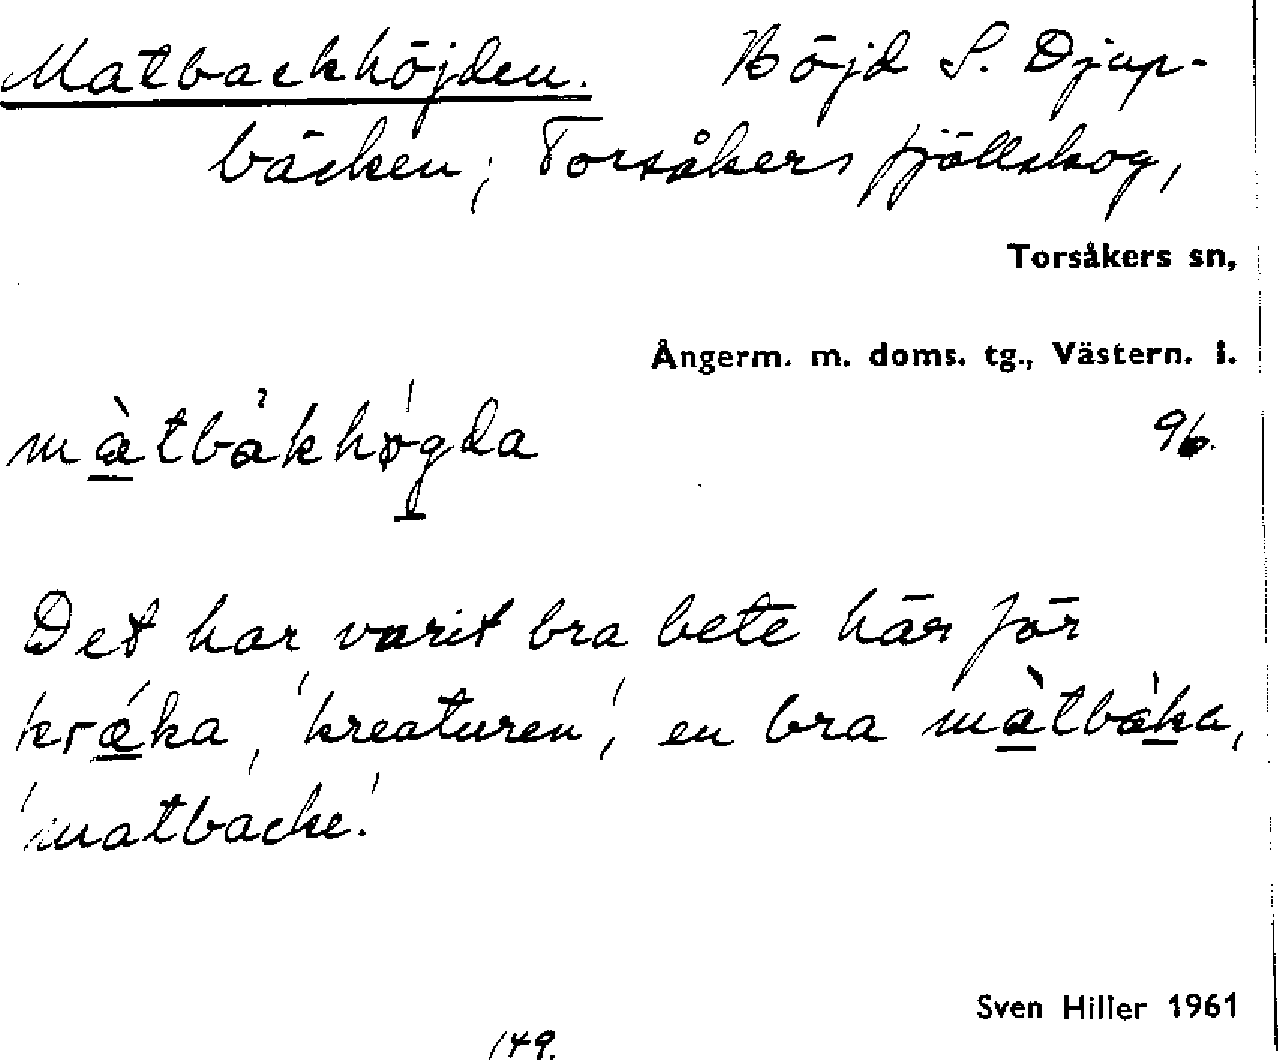 Matbackhöjden. Höjd S. Djup-
bäcken; Torsåkers fjällskog,
Torsåkers sn,
Ångerm. m. doms. tg., Västern. l.
màtbákhǿgda 96.
Det har varit bra bete här för
krǽka, 'kreaturen', en bra màtbàka,
'matbacke'.
Sven Hiller 1961
149.